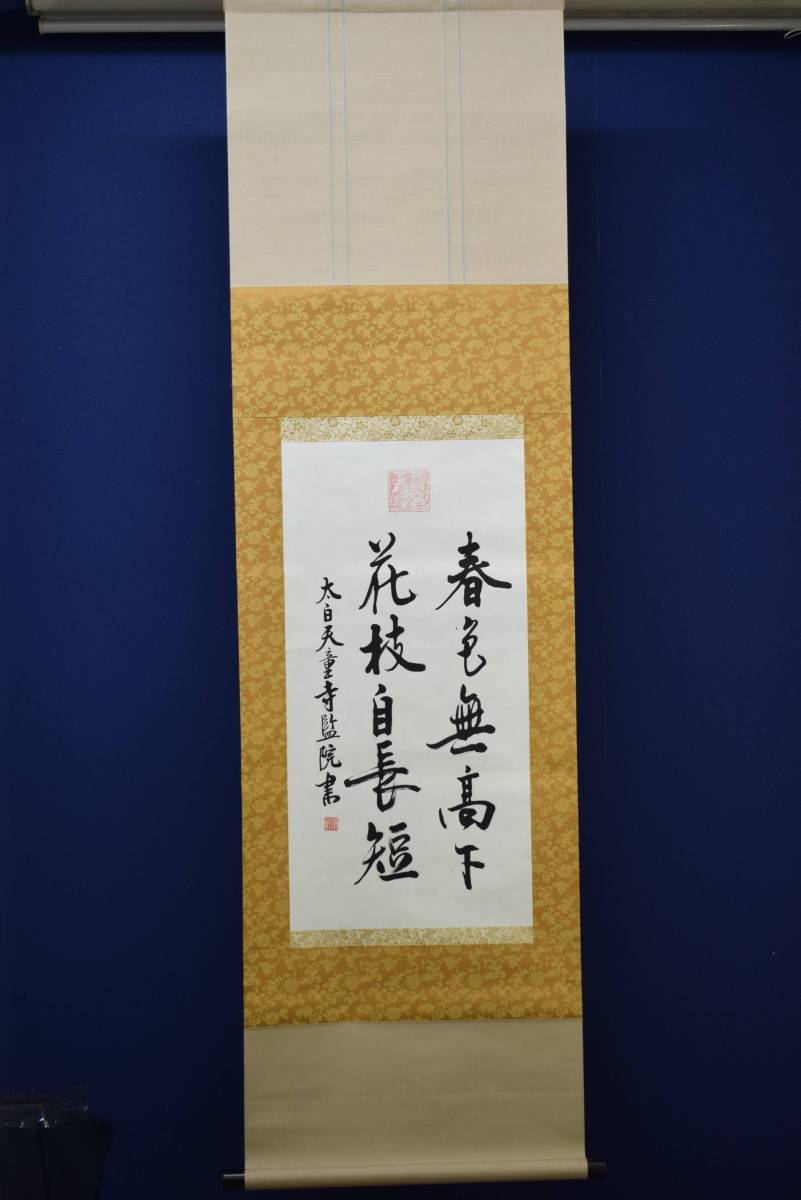 春色無高下
花枝自長短
太白天童寺監院書